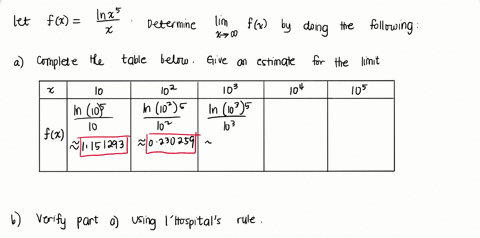 let f(x) = ln x⁵ / x . Determine lim x→∞ f(x) by doing the following:
a) Complete the table below. Give an estimate for the limit
x 10 10² 10³ 10⁴ 10⁵
f(x) ln (10)⁵ / 10 ln (10²)5 / 10² ln (10³)5 / 10³
≈ 1.151293 ≈ 0.230259 ~
b) Verify part a) using l'Hospital's rule.